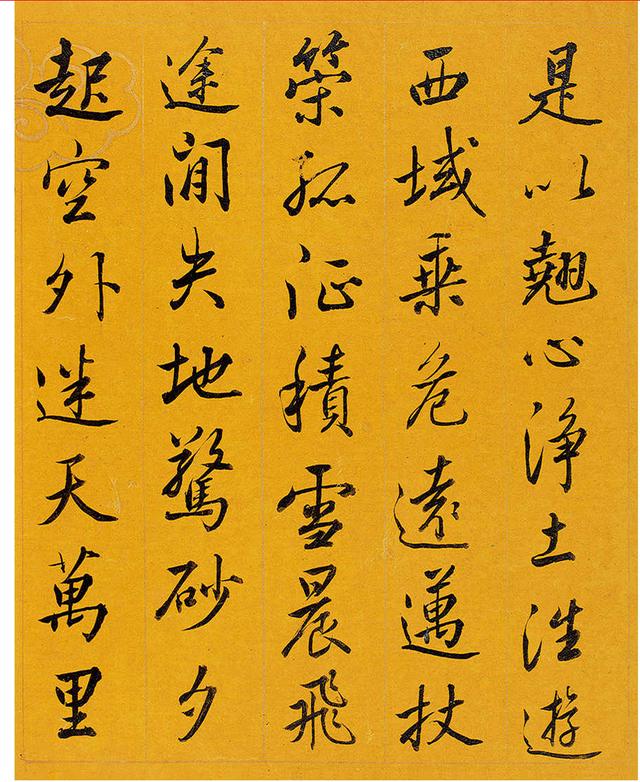 是以翹心淨土法遊
西域乗危遠邁杖
策孤征積雪晨飛
途間失地驚砂夕
起空外迷天萬里